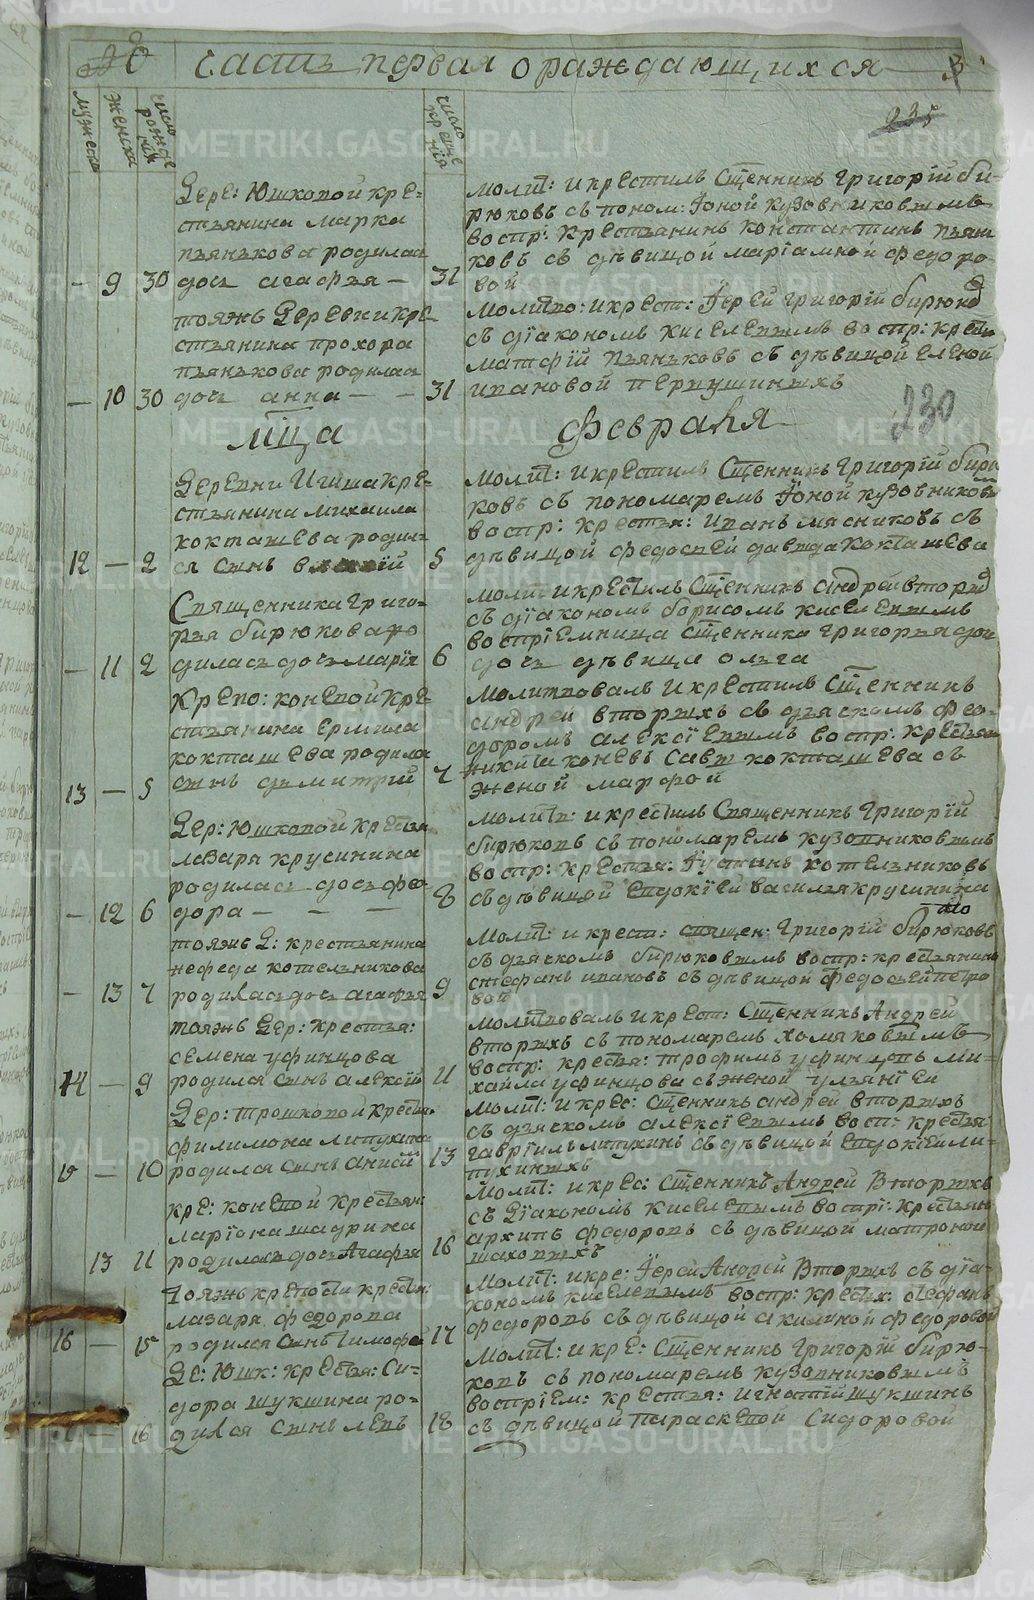 28 часть первая о раждающихся 3
235
мужеска
женска
число рожде нія
число креще нія
Дере: Юшковой кре=
стьянина марка
пьянькова родилас
– 9 30 дочь агафья – 31
молит: и крестилъ Сщенникъ Григорій би-
рюковъ съ поном: Іоной кузовниковымъ
востр: крестьянинъ константинъ пьян
ковъ съ дѣвицой маріамной федоро-
вой
тояжъ Деревни кре
стьянина прохора
пьянькова родилас
– 10 30 дочь анна – – 31
молитво: и крест: Іерей григорій бирюков
съ діакономъ киселевымъ востр: крестья
матфій пьяньковъ съ дѣвицой еленой
ивановой первушиныхъ
230
Мца Февраля
Деревни Игиша кре=
стьянина михаила
кокташева родил=
12 – 2 ся сынъ 5
Молит: и крестилъ Сщенникъ Григорій бирю
ковъ съ пономаремъ Іоной кузовниковы
востр: крестья: иванъ мясниковъ съ
дѣвицой федосьей давыда кокташева
Священника Григо-
рья бирюкова ро
– 11 2 дилась дочь марія 6
молит и крестилъ Сщенникъ андрей вторых
съ діакономъ борисомъ киселевымъ
востріемница Сщенника григорья дочи
дочь дѣвица ольга
Крепо: коневой кре
стьянина ермила
кокташева родилс
13 – 5 сынъ дьмитрій 7
молитвовалъ и крестилъ Сщенникъ
андрей вторыхъ съ дьяскомъ фео-
доромъ алексіевымъ востр: крестьян
никита коневъ савы кокташева съ
женой марфой
Дер: Юшковой крестья
лазаря крусинина
родилась дочь фео
– 12 6 дора – – – 8
молитв: и крестилъ Священникъ Григорій
бирюковъ съ пономаремъ кузовниковымъ
востр: крестья: Іустинъ котельниковъ
съ дѣвицой евдокіей василья крусинина
тояжъ Д: крестьянина
нефеда котельникова
– 13 7 родилась дочь агафья 9
молит: и крести: священ: Григорій бирюковъ
съ дьяскомъ бирюковымъ востр: крестьянинъ
стефанъ ивановъ съ дѣвицой федосьей петро
вой
тояжъ Дер: крестья:
семена уфинцова
14 – 9 родился сынъ алексій 11
молитвовалъ и крест: Сщенникъ Андрей
вторыхъ съ пономаремъ хомяковымъ
востр: крестья: трофимъ уфинцовъ ми-
хайла уфинцова съ женой ульяніей
Дер: трошковой крестья:
филимона липухина
15 – 10 родился сынъ анисій 13
молит: и крес: Сщенникъ андрей вторыхъ
съ дьяскомъ алексіевымъ вост: крестья
гавріилъ липухинъ съ дѣвицой евдокіей ли-
пухиныхъ
кре: коневой крестьян:
ларіона шадрина
13 11 родилась дочь Агафья 16
Молит: и крес: Сщенникъ Андрей Вторыхъ
съ Діакономъ киселевымъ вострі: крестьян
архипъ федоровъ съ дѣвицой матроной
шаховыхъ
тояжъ крепости крестья:
лазаря федорова
16 – 15 родился сынъ тимофей 17
Молит: и кре: Іерей Андрей Вторыхъ съ діа-
кономъ киселевымъ востр: крестья: стефанъ
федоровъ съ дѣвицой акилиной федоровой
Де: Юшк: крестья: Си-
дора шукшина ро-
– 16 дился сынъ левъ 18
Молит: и кре: Сщенникъ Григорій бирю-
ковъ съ пономаремъ кузовниковымъ
востріем: крестья: игнатій шукшинъ
съ дѣвицой параскевой Сидоровой